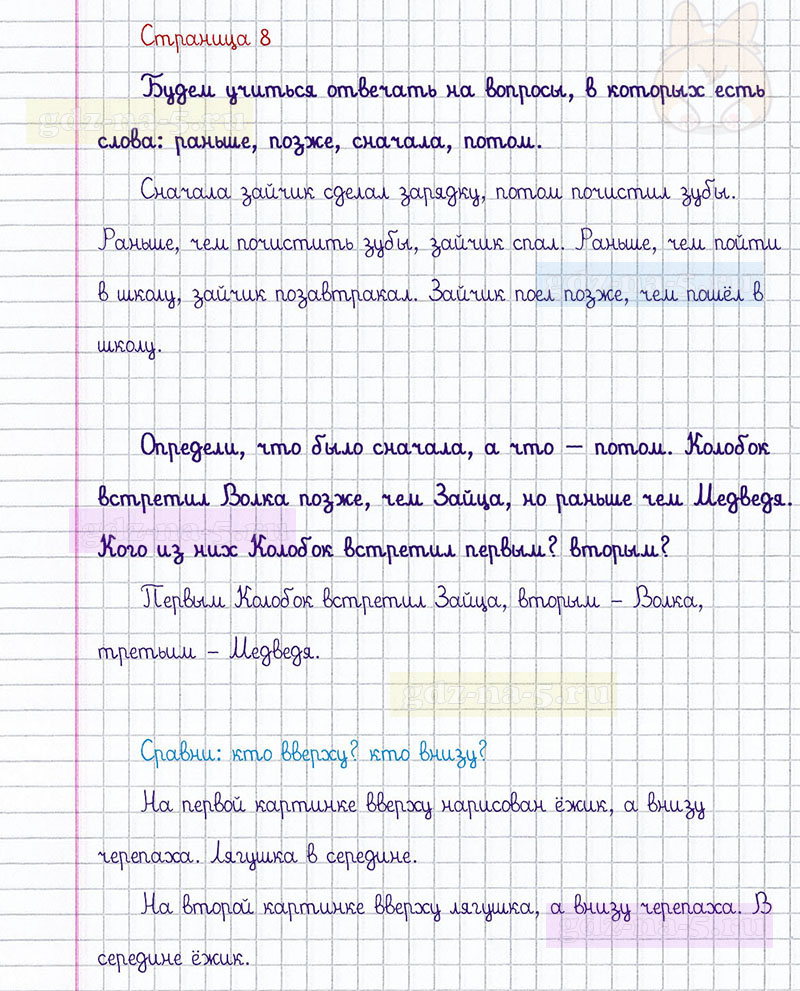 Страница 8
Будем учиться отвечать на вопросы, в которых есть
gdz-na-5.ru
слова: раньше, позже, сначала, потом.
Сначала зайчик сделал зарядку, потом почистил зубы.
Раньше, чем почистить зубы, зайчик спал. Раньше, чем пойти
gdz-na-5.ru
в школу, зайчик позавтракал. Зайчик поел позже, чем пошёл в
школу.
Определи, что было сначала, а что — потом. Колобок
встретил Волка позже, чем Зайца, но раньше чем Медведя.
gdz-na-5.ru
Кого из них Колобок встретил первым? вторым?
Первым Колобок встретил Зайца, вторым – Волка,
третьим – Медведя.
gdz-na-5.ru
Сравни: кто вверху? кто внизу?
На первой картинке вверху нарисован ёжик, а внизу
черепаха. Лягушка в середине.
На второй картинке вверху лягушка, а внизу черепаха. В
gdz-na-5.ru
середине ёжик.